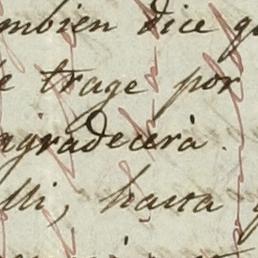 mbien dice q
e trage por
agradecerà.
lli, hasta q